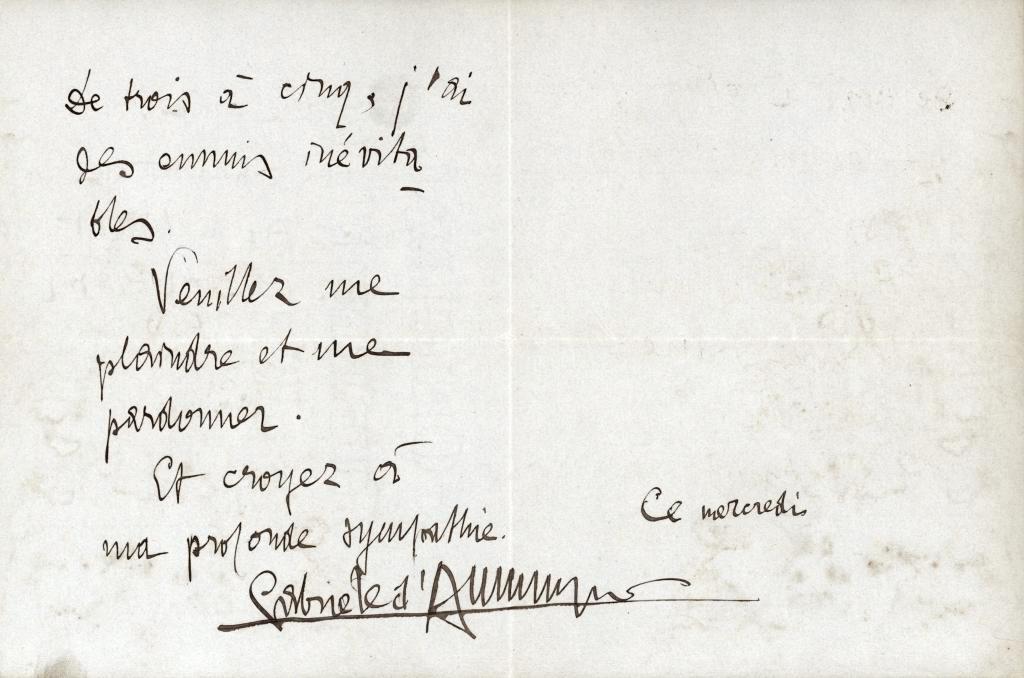 De trois à cinq, j'ai
des ennuis inévita
bles.
Veuillez me
plaindre et me
pardonner.
Et croyez à
ma profonde sympathie.
Gabriele d'Annunzio
Ce mercredi